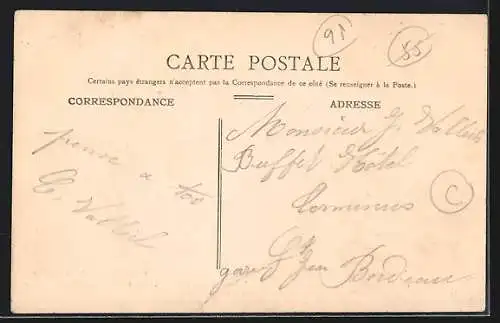 91
55
CARTE POSTALE
Certains pays étrangers n'acceptent pas la Correspondance de ce côté (Se renseigner à la Poste.)
CORRESPONDANCE
ADRESSE
Monsieur J. Valleil
Buffet Hôtel
Terminus
gare St Jean Bordeaux
pense a toi
C. Valleil
C